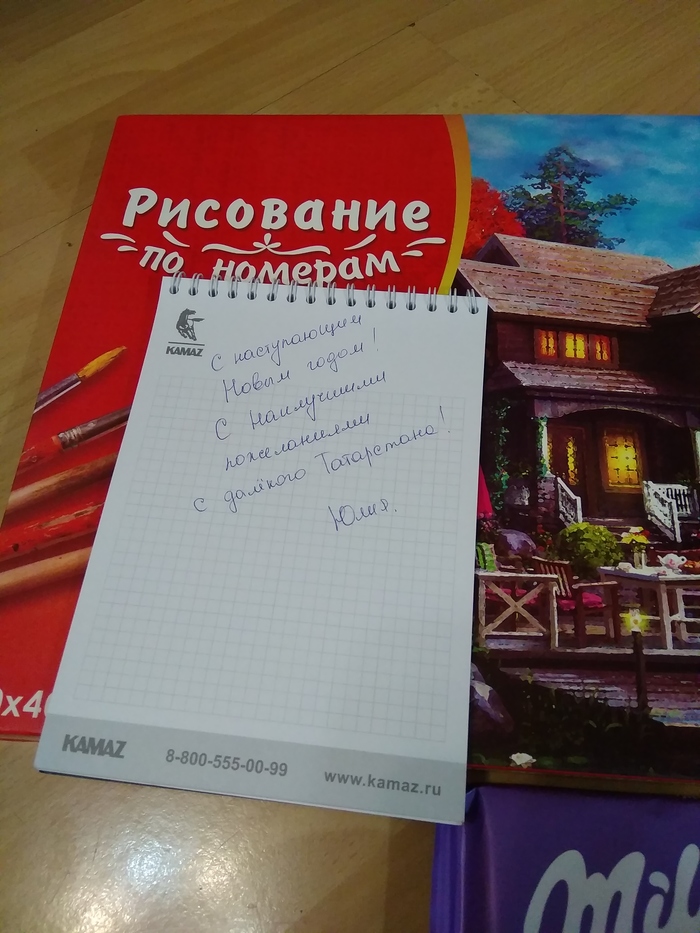 Рисование
по номерам
KAMAZ
С наступающим
Новым годом!
С Наилучшими
пожеланиями
с далёкого Татарстана!
Юлия.
KAMAZ 8-800-555-00-99 www.kamaz.ru